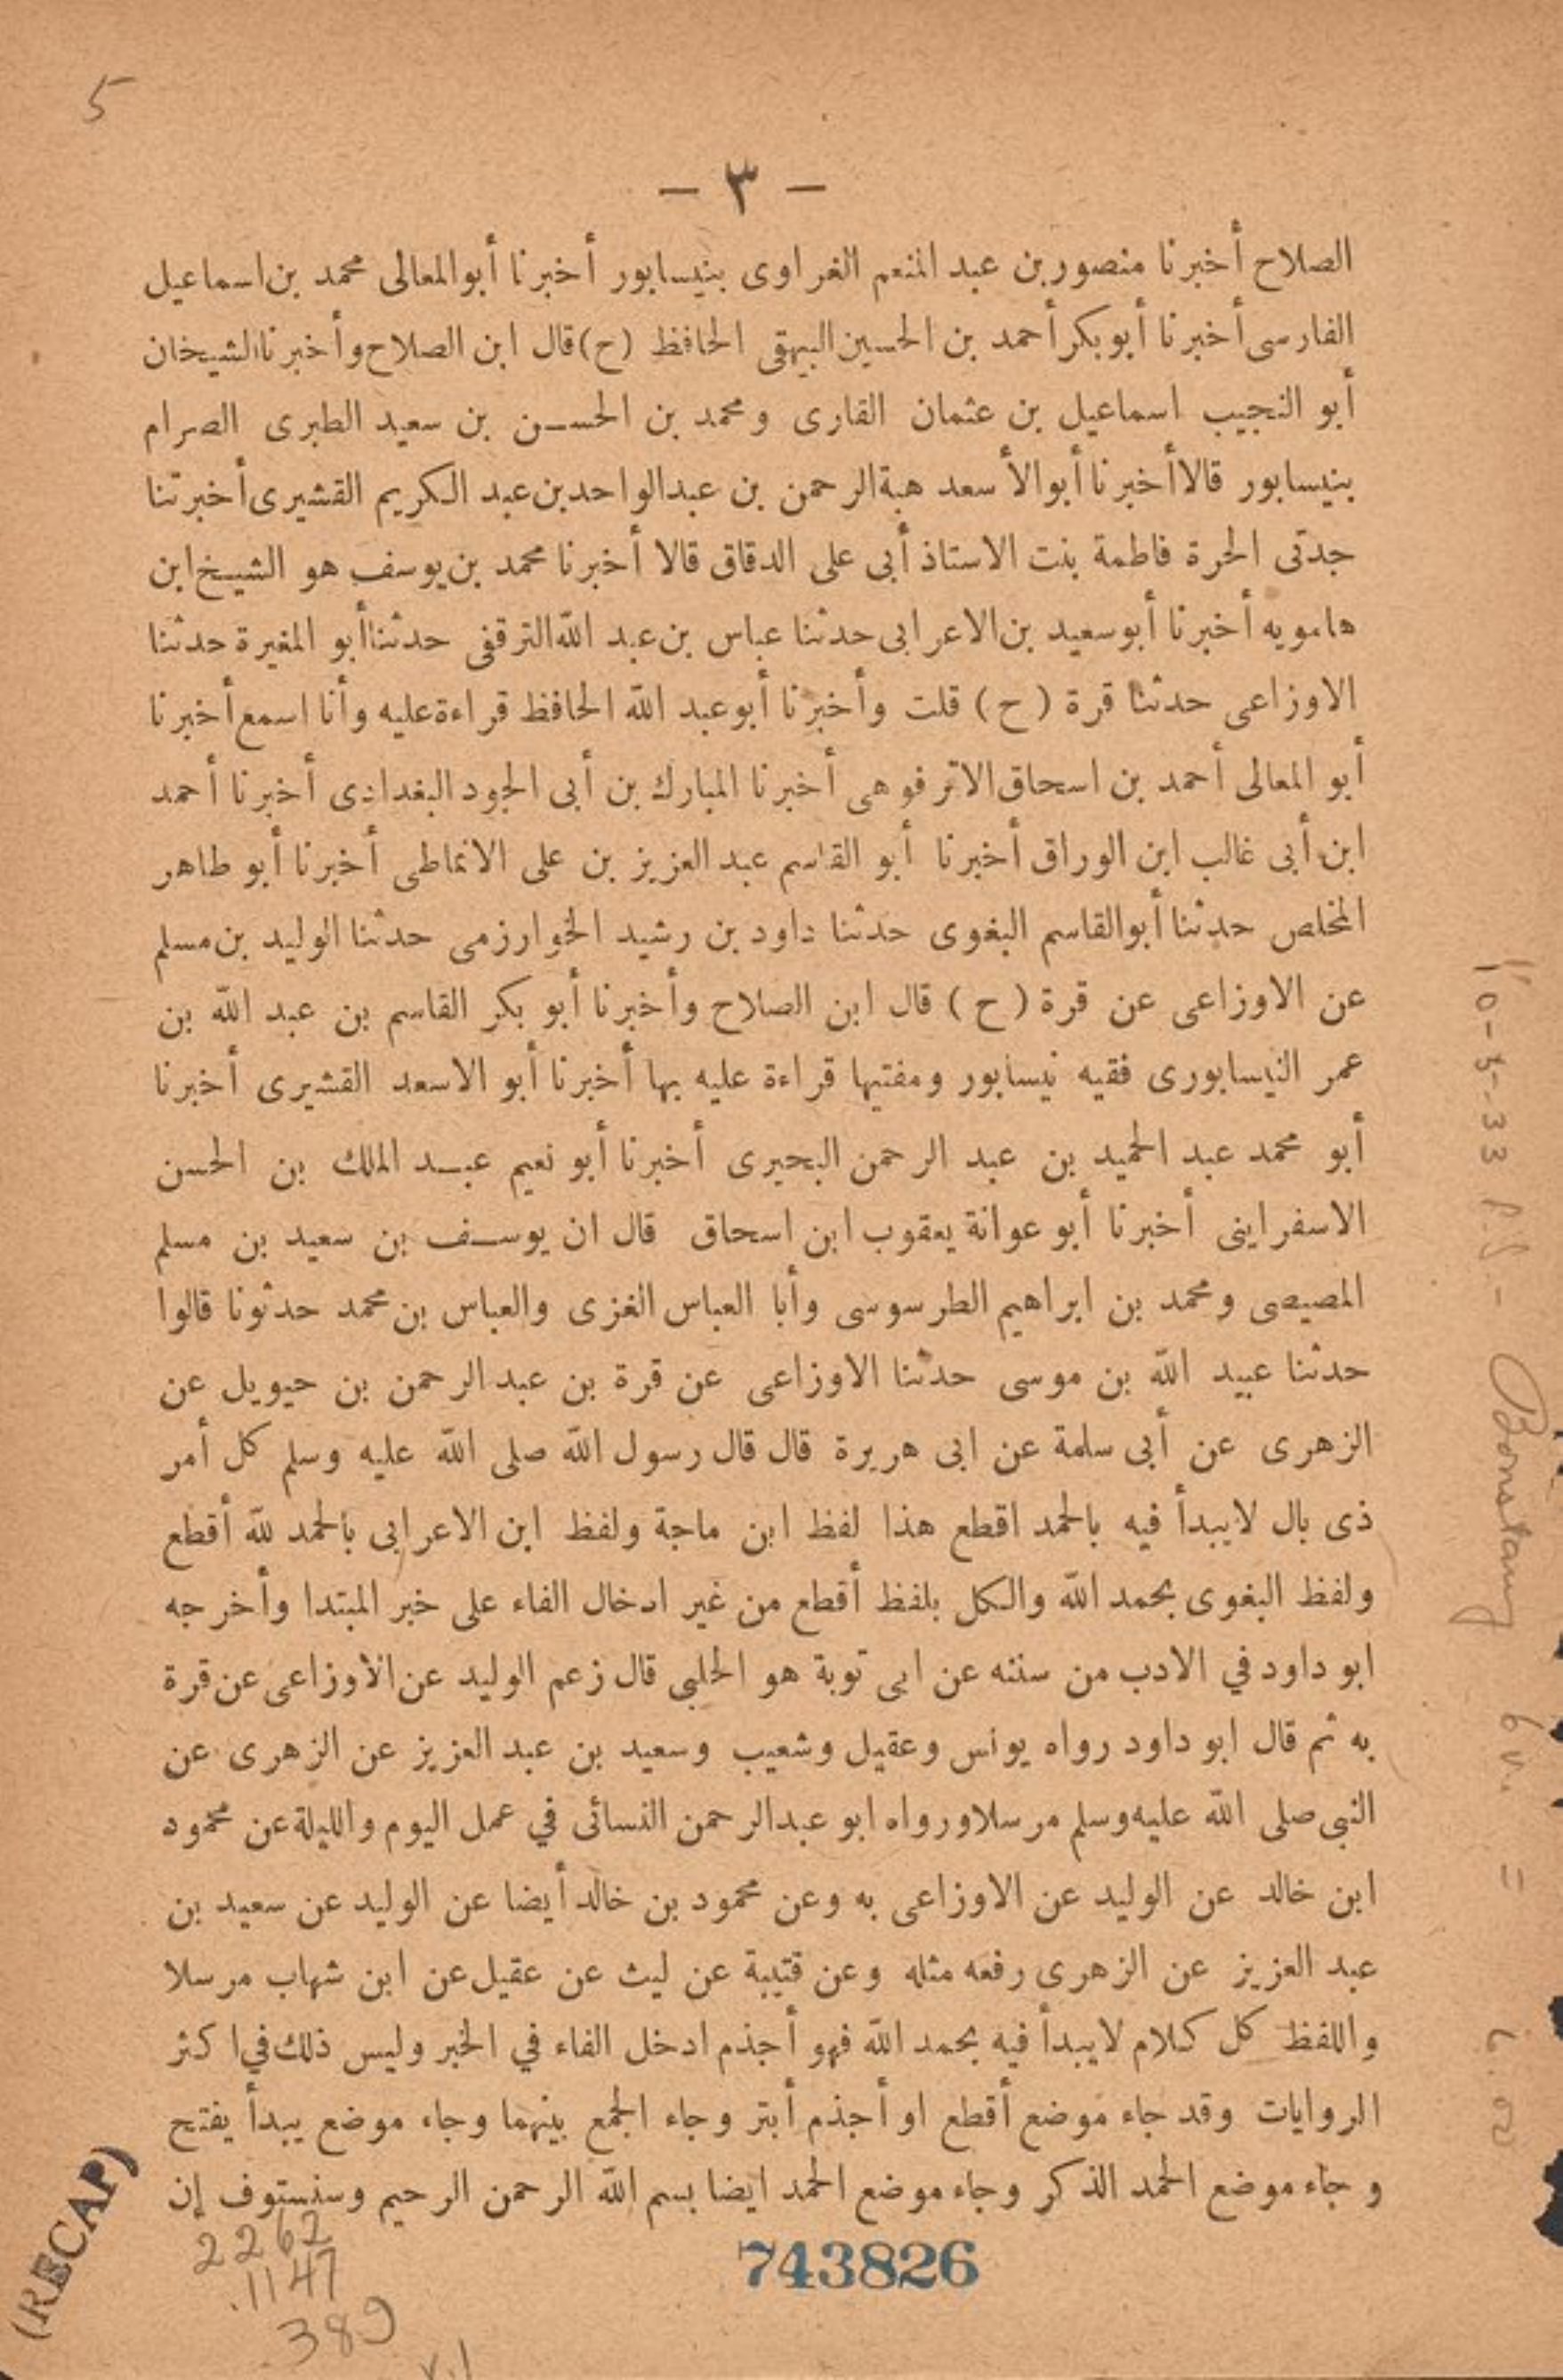 5
— ٣ —
الصلاح أخبرنا منصور بن عبد المنعم الغراوى بنيسابور أخبرنا أبو المعالى محمد بن اسماعيل
الفارسى أخبرنا أبو بكر أحمد بن الحسين البيهقى الحافظ (ح) قال ابن الصلاح وأخبرنا الشيخان
أبو النجيب اسماعيل بن عثمان القارى ومحمد بن الحسن بن سعيد الطبرى الصرام
بنيسابور قالا أخبرنا أبو الأسعد هبة الرحمن بن عبد الواحد بن عبد الكريم القشيرى أخبرتنا
جدتى الحرة فاطمة بنت الاستاذ أبى على الدقاق قالا أخبرنا محمد بن يوسف هو الشيخ ابن
هامويه أخبرنا أبو سعيد بن الاعرابى حدثنا عباس بن عبد الله الترقفى حدثنا أبو المغيرة حدثنا
الاوزاعى حدثنا قرة (ح) قلت وأخبرنا أبو عبد الله الحافظ قراءة عليه وأنا اسمع أخبرنا
أبو المعالى أحمد بن اسحاق الاترفوهى أخبرنا المبارك بن أبى الجود البغدادى أخبرنا أحمد
ابن أبى غالب ابن الوراق أخبرنا أبو القاسم عبد العزيز بن على الانماطى أخبرنا أبو طاهر
المخلص حدثنا أبو القاسم البغوى حدثنا داود بن رشيد الخوارزمى حدثنا الوليد بن مسلم
عن الاوزاعى عن قرة (ح) قال ابن الصلاح وأخبرنا أبو بكر القاسم بن عبد الله بن
عمر النيسابورى فقيه نيسابور ومفتيها قراءة عليه بها أخبرنا أبو الاسعد القشيرى أخبرنا
أبو محمد عبد الحميد بن عبد الرحمن البحيرى أخبرنا أبو نعيم عبد الملك بن الحسن
الاسفراينى أخبرنا أبو عوانة يعقوب ابن اسحاق قال ان يوسف بن سعيد بن مسلم
المصيصى ومحمد بن ابراهيم الطرسوسى وأبا العباس الغزى والعباس بن محمد حدثونا قالوا
حدثنا عبيد الله بن موسى حدثنا الاوزاعى عن قرة بن عبد الرحمن بن حيويل عن
الزهرى عن أبى سلمة عن ابى هريرة قال قال رسول الله صلى الله عليه وسلم كل أمر
ذى بال لا يبدأ فيه بالحمد اقطع هذا لفظ ابن ماجة ولفظ ابن الاعرابى بالحمد لله أقطع
ولفظ البغوى بحمد الله والكل بلفظ أقطع من غير ادخال الفاء على خبر المبتدا وأخرجه
ابو داود في الادب من سننه عن ابى توبة هو الحلبى قال زعم الوليد عن الاوزاعى عن قرة
به ثم قال ابو داود رواه يونس وعقيل وشعيب وسعيد بن عبد العزيز عن الزهرى عن
النبى صلى الله عليه وسلم مرسلا ورواه ابو عبد الرحمن النسائى في عمل اليوم والليلة عن محمود
ابن خالد عن الوليد عن الاوزاعى به وعن محمود بن خالد أيضا عن الوليد عن سعيد بن
عبد العزيز عن الزهرى رفعه مثله وعن قتيبة عن ليث عن عقيل عن ابن شهاب مرسلا
واللفظ كل كلام لا يبدأ فيه بحمد الله فهو أجذم ادخل الفاء في الخبر وليس ذلك في اكثر
الروايات وقد جاء موضع أقطع او أجذم أبتر وجاء الجمع بينهما وجاء موضع يبدأ يفتح
وجاء موضع الحمد الذكر وجاء موضع الحمد ايضا بسم الله الرحمن الرحيم وسنستوف إن
743826
(RECAP)
2262
.1147
.389